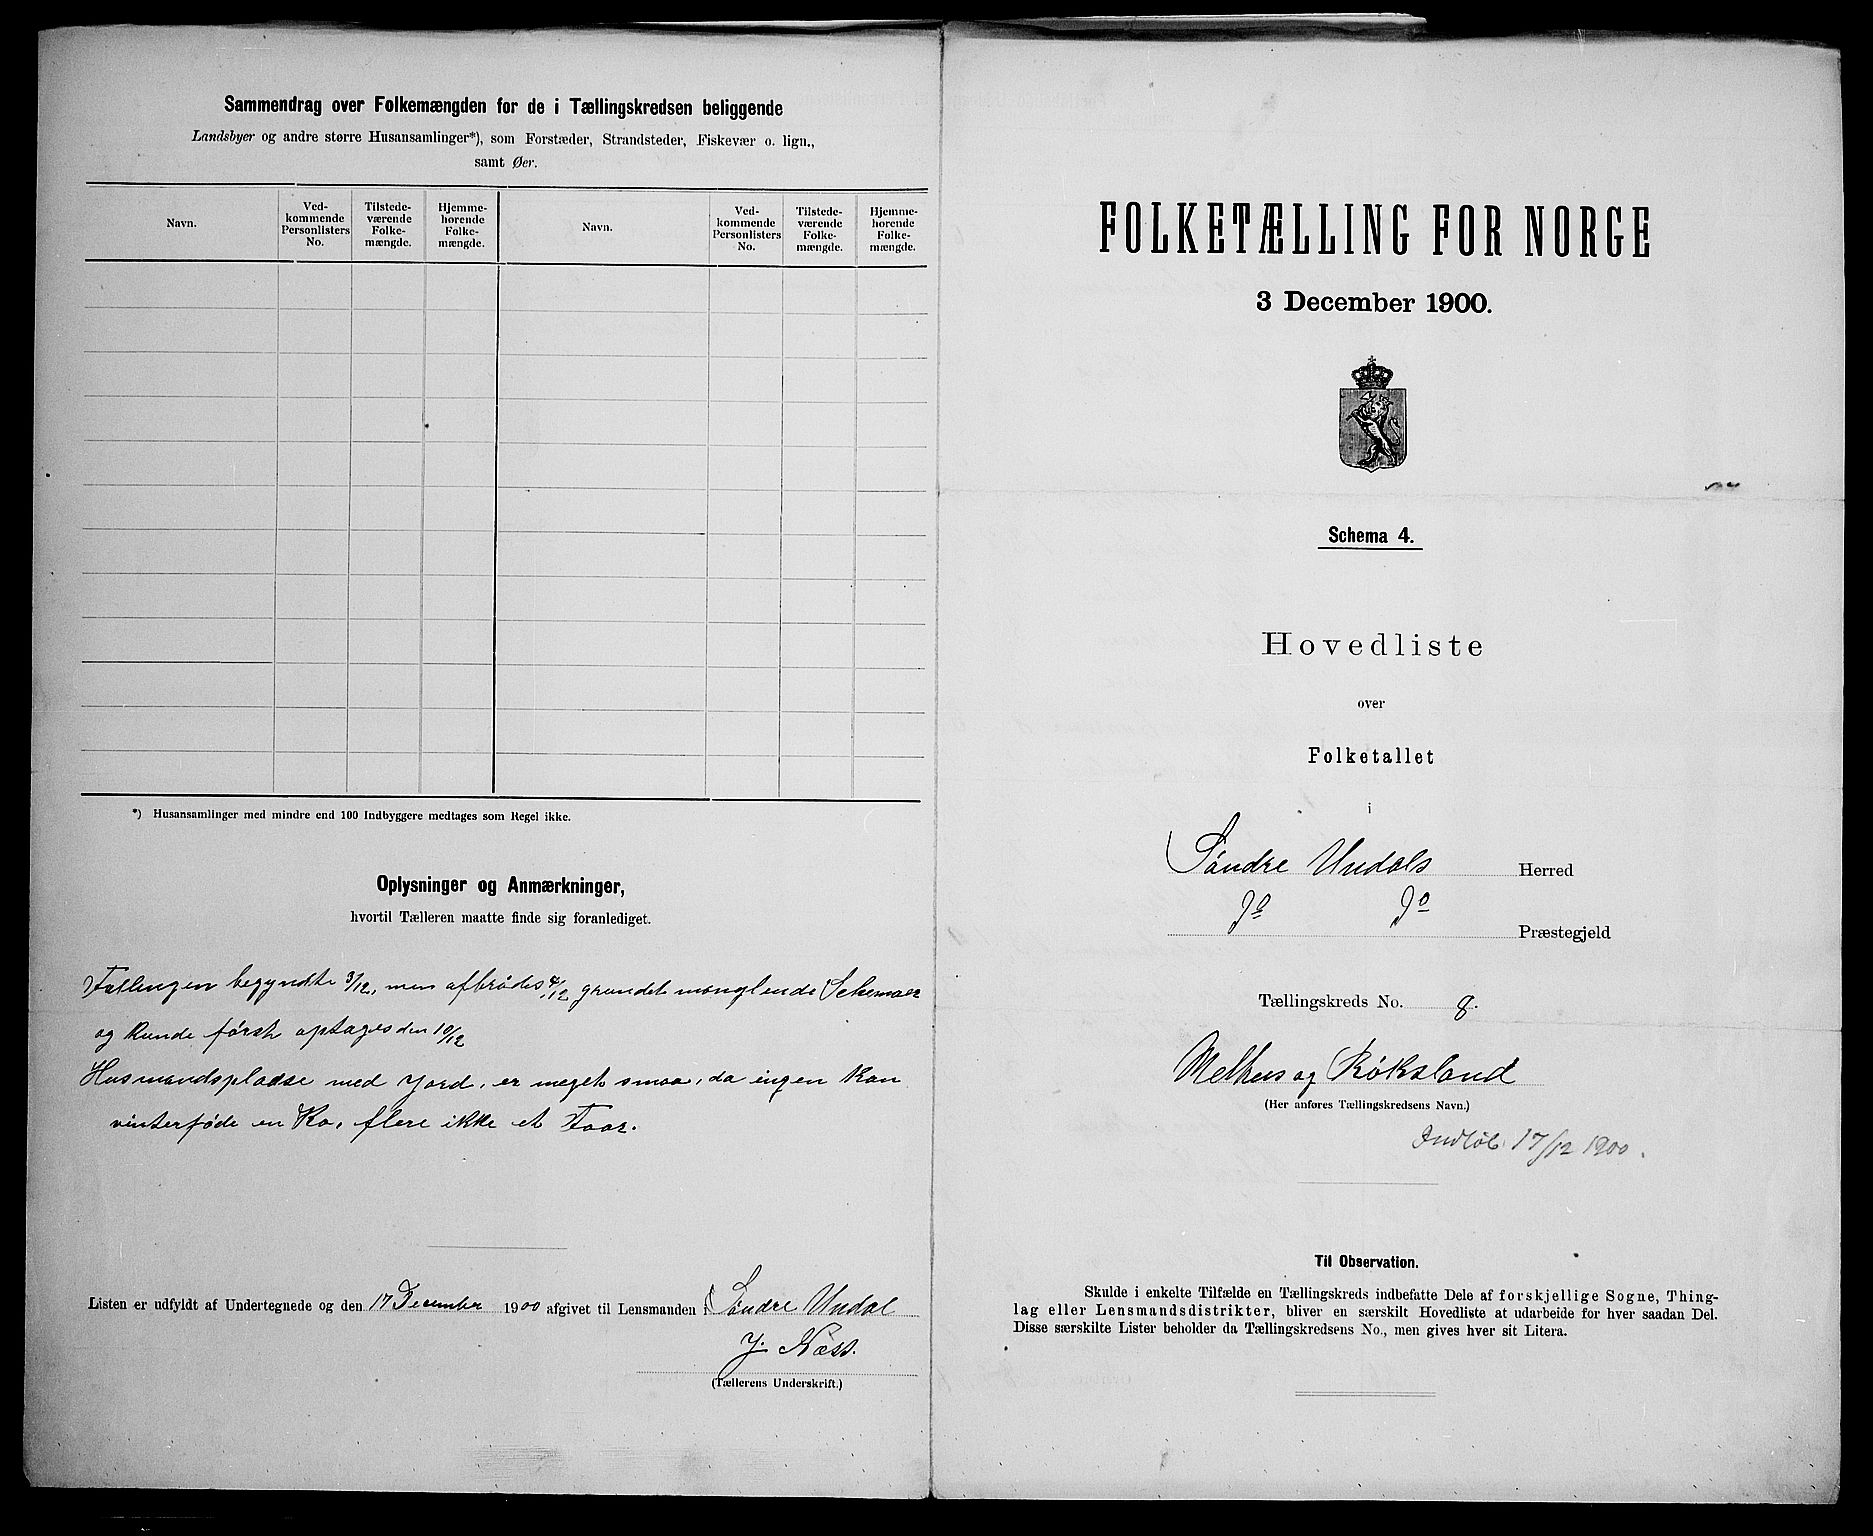 Sammendrag over Folkemængden for de i Tællingskredsen beliggende
Landsbyer og andre større Husansamlinger*), som Forstæder, Strandsteder, Fiskevær o. lign.,
samt Øer.
Navn.
Ved-
kommende
Personlisters
No.
Tilstede-
værende
Folke-
mængde.
Hjemme-
hørende
Folke-
mængde.
Navn.
Ved-
kommende
Personlisters
No.
Tilstede-
værende
Folke-
mængde.
Hjemme-
hørende
Folke-
mængde.
*) Husansamlinger med mindre end 100 Indbyggere medtages som Regel ikke.
Oplysninger og Anmærkninger,
hvortil Tælleren maatte finde sig foranlediget.
Tællingen begyndte 3/12, men afbrødes 4/12 grundet manglende Schemaer
og kunde først optages den 10/12
Husmandspladse med Jord, er meget smaa, da ingen kan
vinterføde en Ko, flere ikke et Faar.
Listen er udfyldt af Undertegnede og den 17 December 1900 afgivet til Lensmanden i Søndre Undal
J. Næss.
(Tællerens Underskrift.)
FOLKETÆLLING FOR NORGE
3 December 1900.
Schema 4.
Hovedliste
over
Folketallet
i
Søndre Undals Herred
do do Præstegjeld
Tællingskreds No. 8.
Melhus og Røksland
(Her anføres Tællingskredsens Navn.)
Indløb 17/12 1900.
Til Observation.
Skulde i enkelte Tilfælde en Tællingskreds indbefatte Dele af forskjellige Sogne, Thing-
lag eller Lensmandsdistrikter, bliver en særskilt Hovedliste at udarbeide for hver saadan Del.
Disse særskilte Lister beholder da Tællingskredsens No., men gives hver sit Litera.